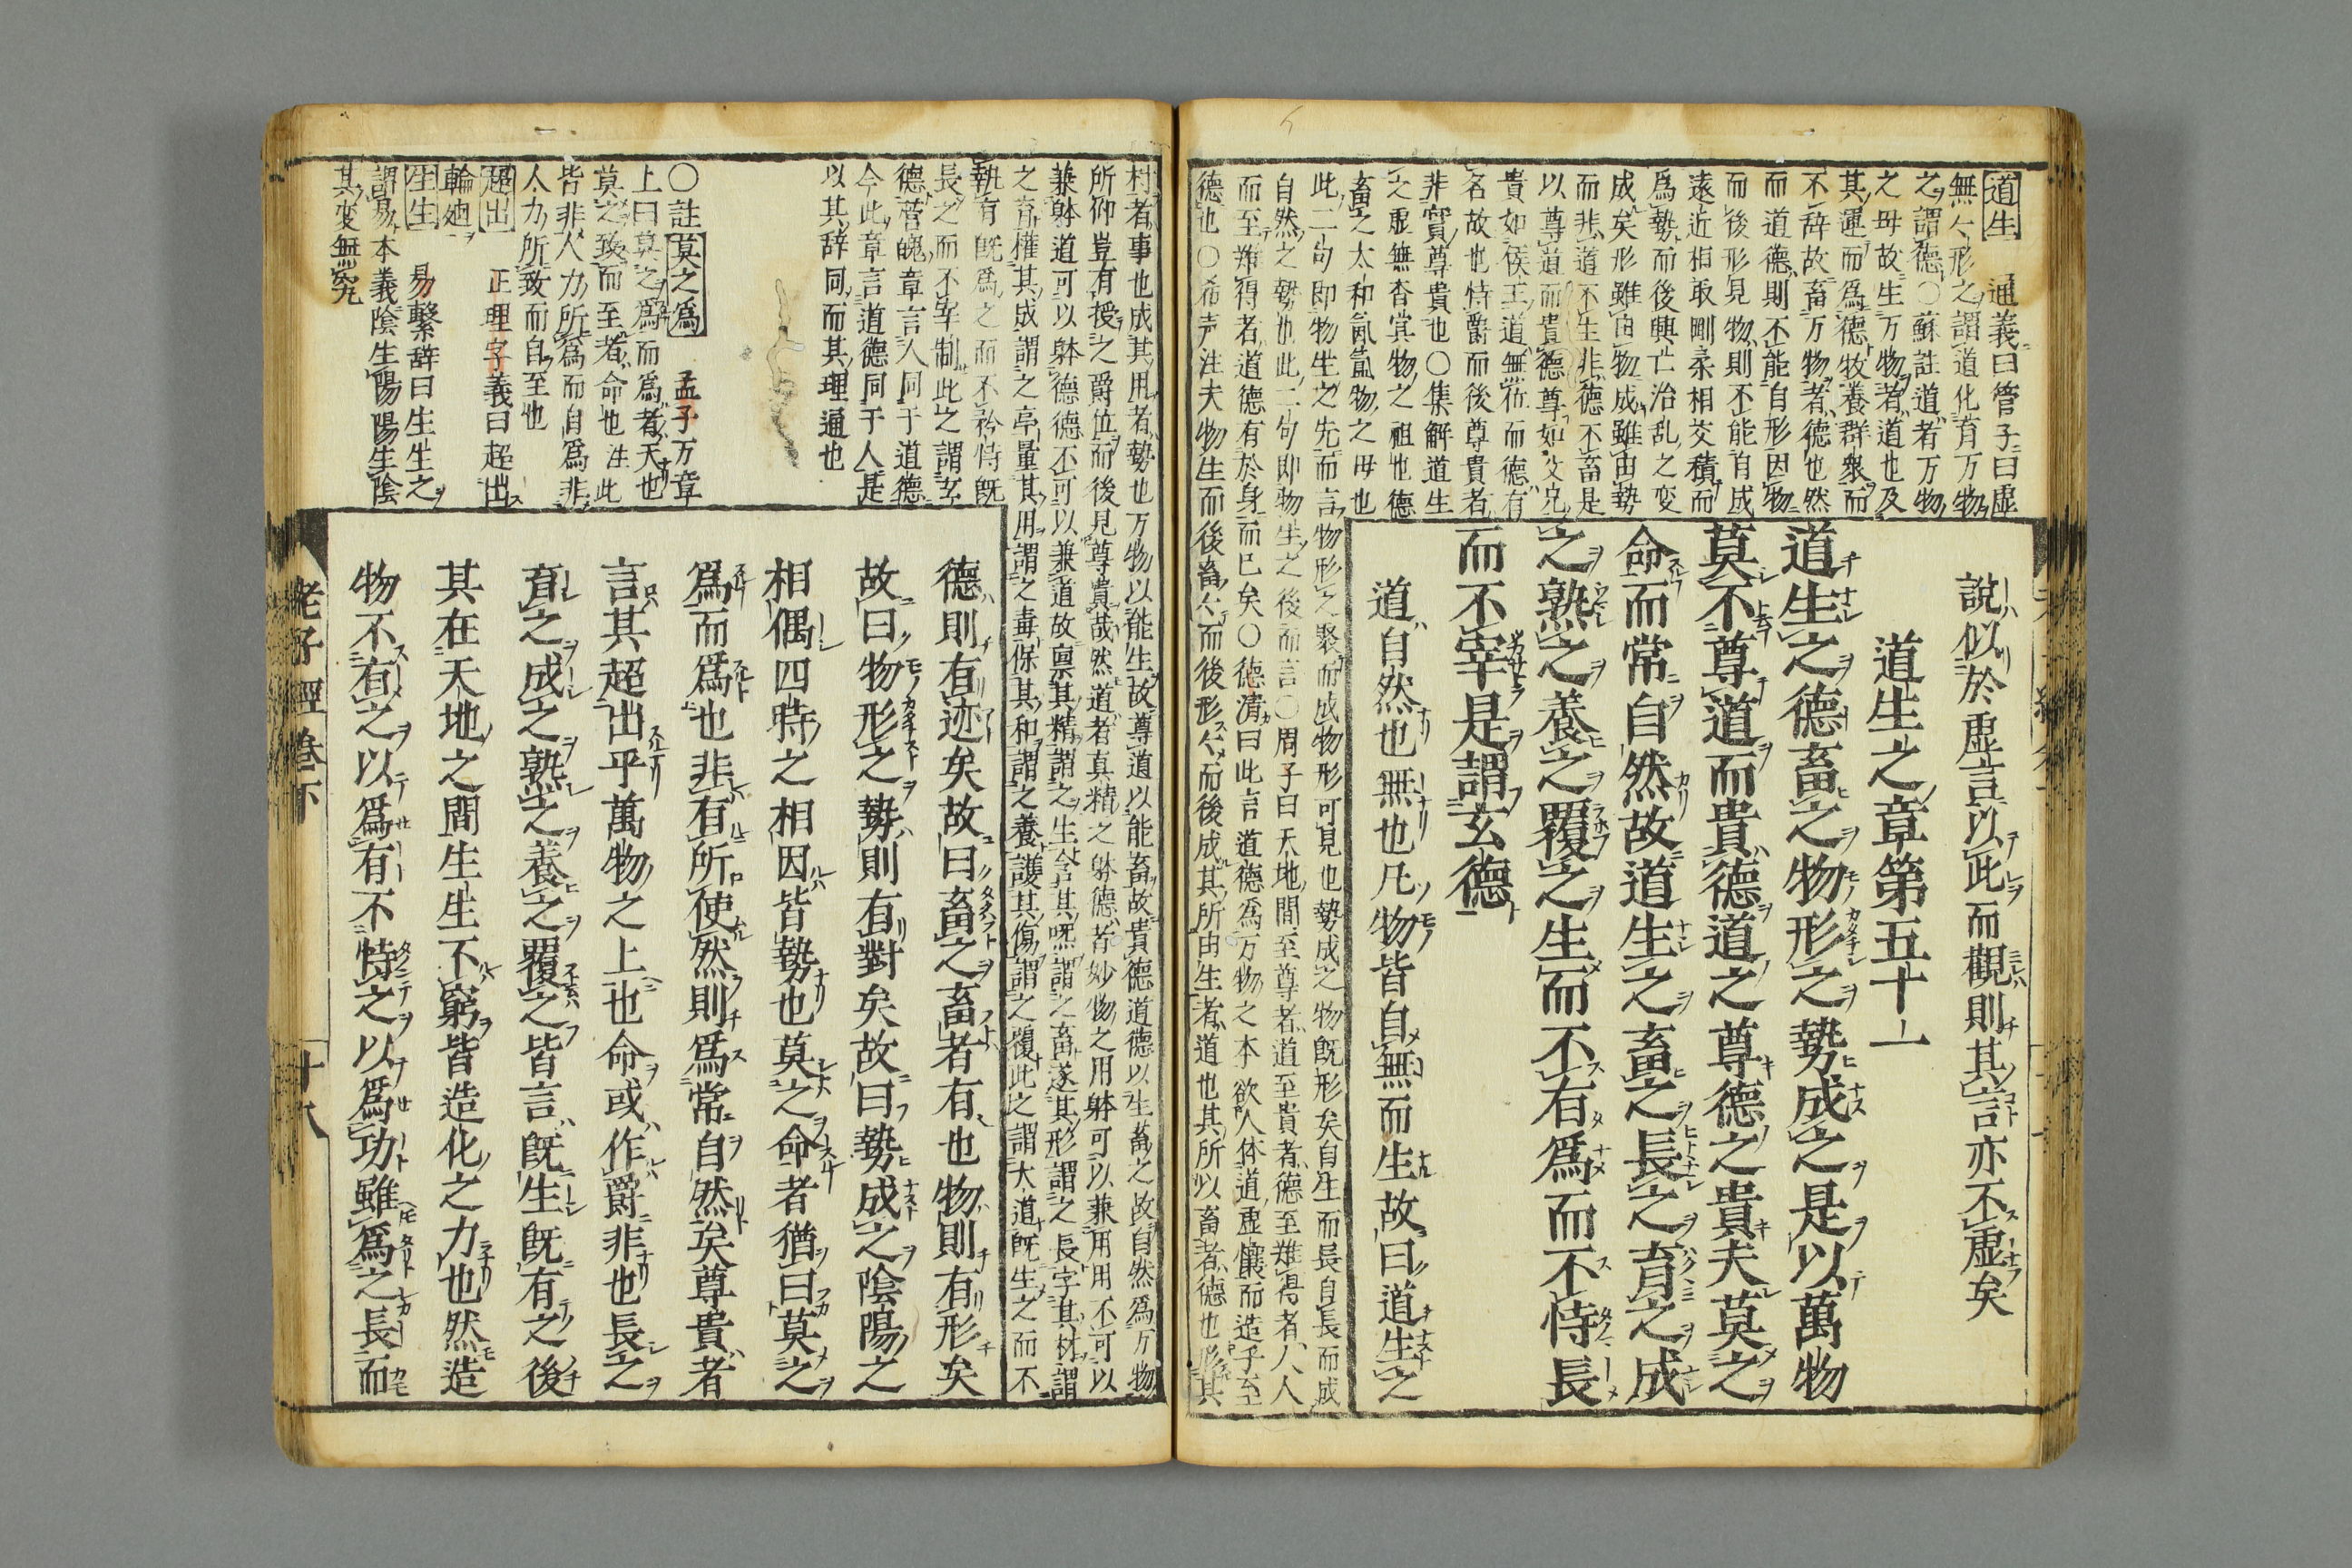 道生 通義曰管子曰虛
無人形之謂道化育万物
之謂德○蘇註道者万物
之母故生万物者道也及
其運而爲德牧養群衆而
不辞故畜万物者德也然
而道德則不能自形因物
而後形見物則不能自成
遠近相取剛柔相交積而
爲勢而後興亡治乱之変
成矣形雖由物成雖由勢
而非道不生非德不畜是
以尊道而貴德尊如父兄
貴如侯王道無位而德有
名故也恃爵而後尊貴者
非實尊貴也○集解道生
之虛無杳冥物之祖也德
畜之太和氤氳物之母也
此二句即物生之先而言物形之聚而成物形可見也勢成之物既形矣自生而長自長而成
自然之勢也此二句即物生之後而言○周子曰天地間至尊者道至貴者德至難得者人人
而至難得者道德有於身而已矣○德清曰此言道德爲万物之本欲人体道虛懷而造乎至
德也○希声注夫物生而後畜々而後形々而後成其所由生者道也其所以畜者德也形其
說似於虛言以此而觀則其言亦不虛矣
道生之章第五十一
道生之德畜之物形之勢成之是以萬物
莫不尊道而貴德道之尊德之貴夫莫之
命而常自然故道生之畜之長之育之成
之熟之養之覆之生而不有爲而不恃長
而不宰是謂玄德
道自然也無也凡物皆自無而生故曰道生之
材者事也成其用者勢也万物以能生故尊道以能畜故貴德道德以生畜之故自然爲万物
所仰豈有授之爵位而後見尊貴哉然道者真精之躰德者妙物之用躰可以兼用用不可以
兼躰道可以躰德德不可以兼道故禀其精謂之生含其呕謂之畜遂其形謂之長字其材謂
之育權其成謂之亭量其用謂之毒保其和謂之養護其傷謂之覆此之謂大道既生之而不
執有既爲之而不矜恃既
長之而不宰制此之謂玄
德營魄章言人同于道德
今此章言道德同于人是
以其辞同而其理通也
○註莫之爲 孟子万章
上曰莫之爲而爲者天也
莫之致而至者命也注此
皆非人力所爲而自爲非
人力所致而自至也
超出 正理字義曰超出
輪廻
生生 易繫辞曰生生之
謂易本義陰生陽陽生陰
其変無窮
德則有迹矣故曰畜之畜者有也物則有形矣
故曰物形之勢則有對矣故曰勢成之陰陽之
相偶四時之相因皆勢也莫之命者猶曰莫之
爲而爲也非有所使然則爲常自然矣尊貴者
言其超出乎萬物之上也命或作爵非也長之
育之成之熟之養之覆之皆言既生既有之後
其在天地之間生生不窮皆造化之力也然造
物不有之以爲有不恃之以爲功雖爲之長而
老子經卷下 十八